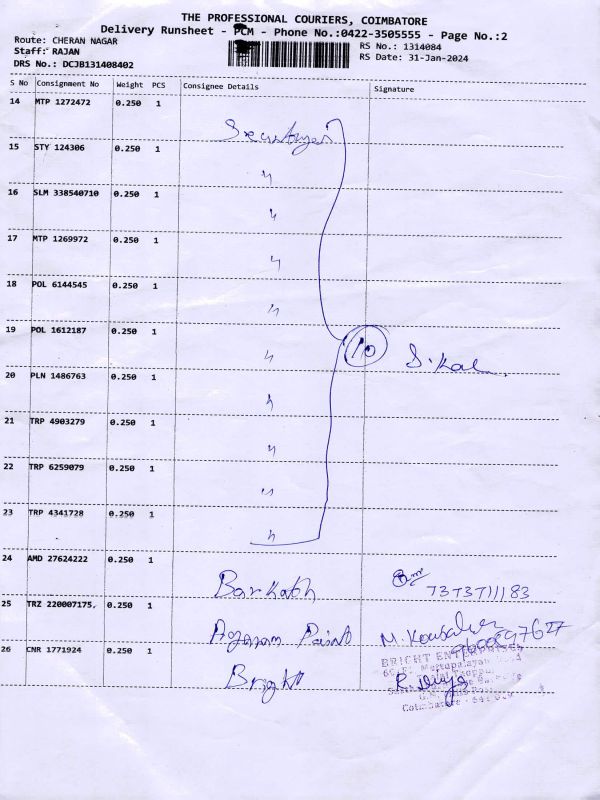 THE PROFESSIONAL COURIERS, COIMBATORE
Delivery Runsheet - PCM - Phone No.:0422-3505555 - Page No.:2
Route: CHERAN NAGAR
Staff: RAJAN
DRS No.: DCJB131408402
RS No.: 1314084
RS Date: 31-Jan-2024
S No Consignment No Weight PCS Consignee Details Signature
14 MTP 1272472 0.250 1
15 STY 124306 0.250 1 〃
16 SLM 338540710 0.250 1 〃
17 MTP 1269972 0.250 1 〃
18 POL 6144545 0.250 1 〃
19 POL 1612187 0.250 1 〃 10 S. Kal
20 PLN 1486763 0.250 1 〃
21 TRP 4903279 0.250 1 〃
22 TRP 6259079 0.250 1 〃
23 TRP 4341728 0.250 1 〃
24 AMD 27624222 0.250 1 Barkath 7373711183
25 TRZ 220007175, 0.250 1 Agaram Paint M. Kousalya
26 CNR 1771924 0.250 1 Bright
BRIGHT ENTERPRISES
R. Divya
Coimbatore - 641